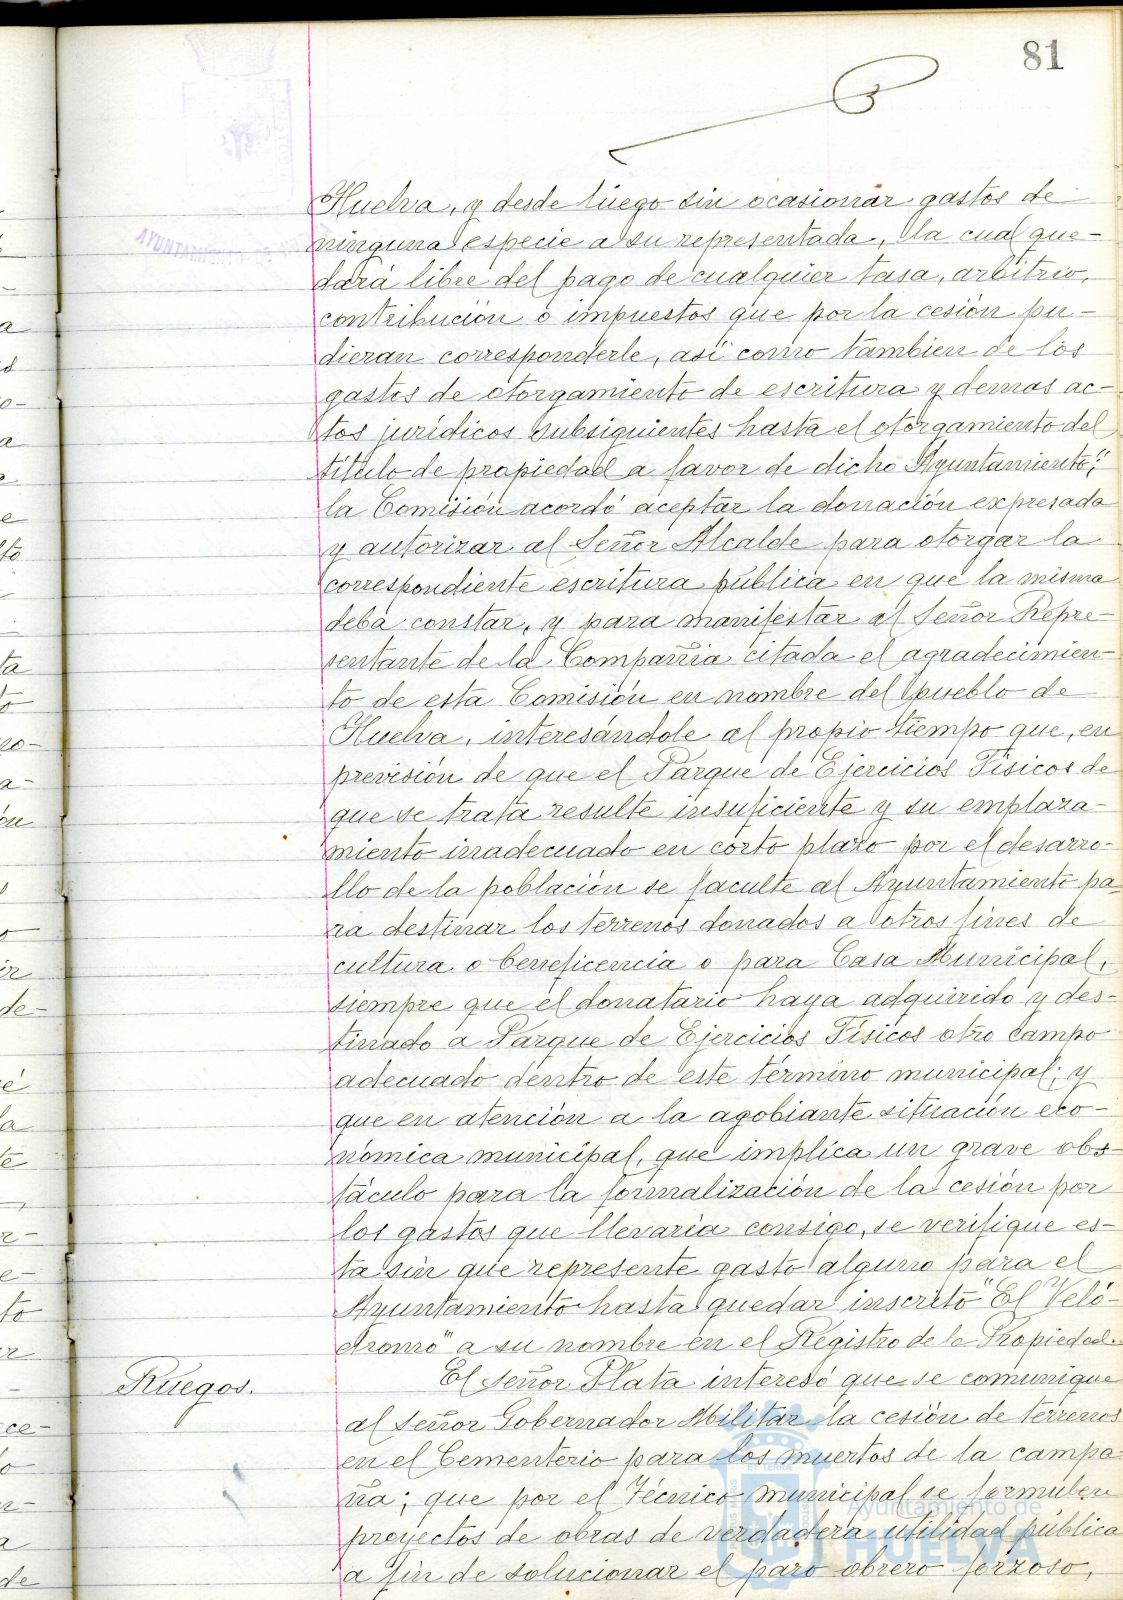 81
Huelva, y desde luego sin ocasionar gastos de
ninguna especie a su representada, la cual que-
dará libre del pago de cualquier tasa, arbitrio,
contribución o impuestos que por la cesión pu-
dieran corresponderle, así como tambien de los
gastos de otorgamiento de escritura y demas ac-
tos jurídicos subsiguientes hasta el otorgamiento del
título de propiedad a favor de dicho Ayuntamiento;"
la Comisión acordó aceptar la donación expresada
y autorizar al Señor Alcalde para otorgar la
correspondiente escritura pública en que la misma
deba constar, y para manifestar al Señor Repre-
sentante de la Compañia citada el agradecimien-
to de esta Comisión en nombre del pueblo de
Huelva, interesándole al propio tiempo que, en
previsión de que el Parque de Ejercicios Físicos de
que se trata resulte insuficiente y su emplaza-
miento inadecuado en corto plazo por el desarro-
llo de la población se faculte al Ayuntamiento pa-
ra destinar los terrenos donados a otros fines de
cultura o beneficencia o para Casa Municipal,
siempre que el donatario haya adquirido y des-
tinado a Parque de Ejercicios Físicos otro campo
adecuado dentro de este término municipal; y
que en atención a la agobiante situación eco-
nómica municipal, que implica un grave obs-
táculo para la formalización de la cesión por
los gastos que llevaria consigo, se verifique es-
ta sin que represente gasto alguno para el
Ayuntamiento hasta quedar inscrito "El Veló-
dromo" a su nombre en el Registro de la Propiedad.
Ruegos.
El señor Plata interesó que se comunique
al señor Gobernador Militar la cesión de terrenos
en el Cementerio para los muertos de la campa-
ña; que por el Técnico municipal se formulen
proyectos de obras de verdadera utilidad pública
a fin de solucionar el paro obrero forzoso,
Ayuntamiento de
HUELVA